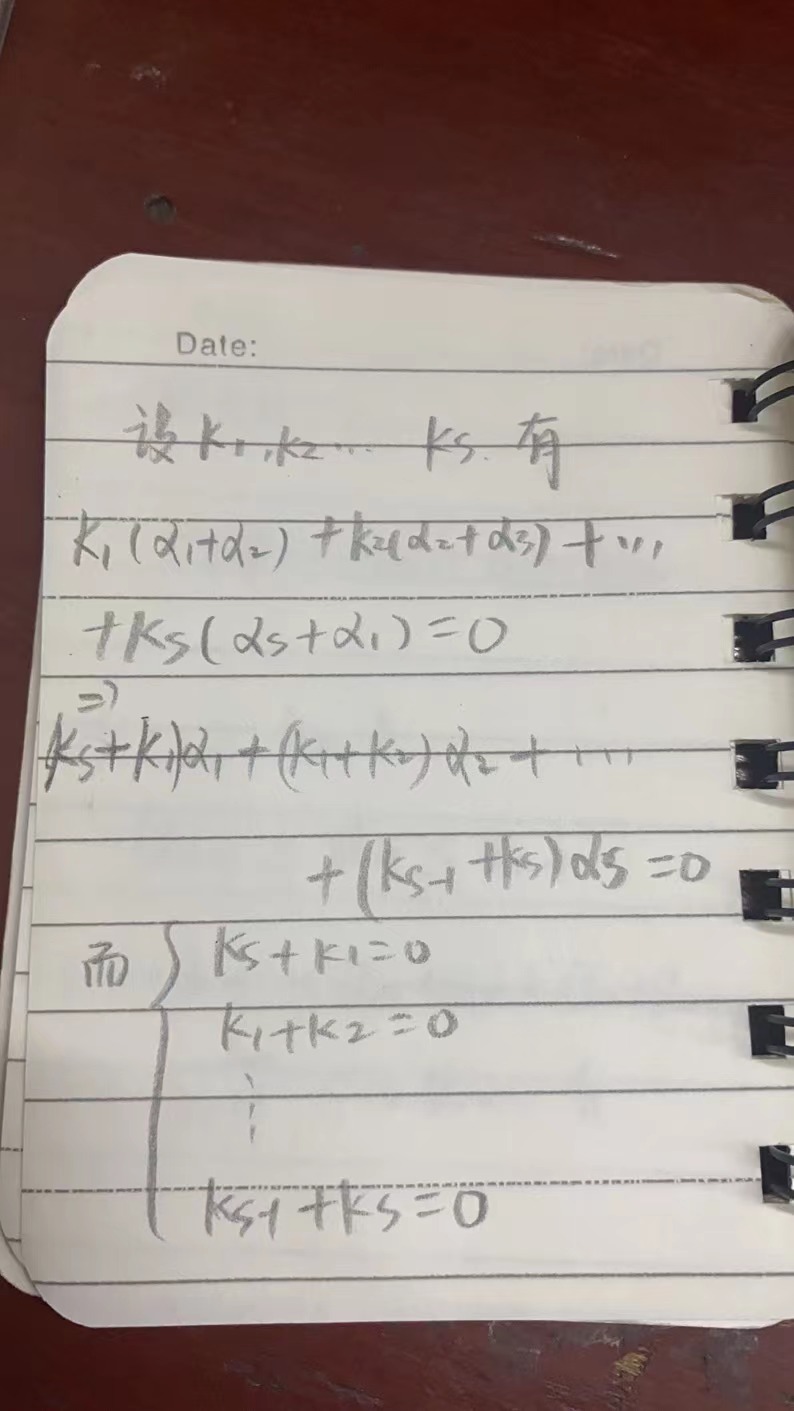 Date:
设 k₁,k₂… kₛ. 有
k₁(α₁+α₂)+k₂(α₂+α₃)+…
+kₛ(αₛ+α₁)=0
⇒
(kₛ+k₁)α₁+(k₁+k₂)α₂+…
+(kₛ₋₁+kₛ)αₛ=0
而 { kₛ+k₁=0
k₁+k₂=0
⋮
kₛ₋₁+kₛ=0